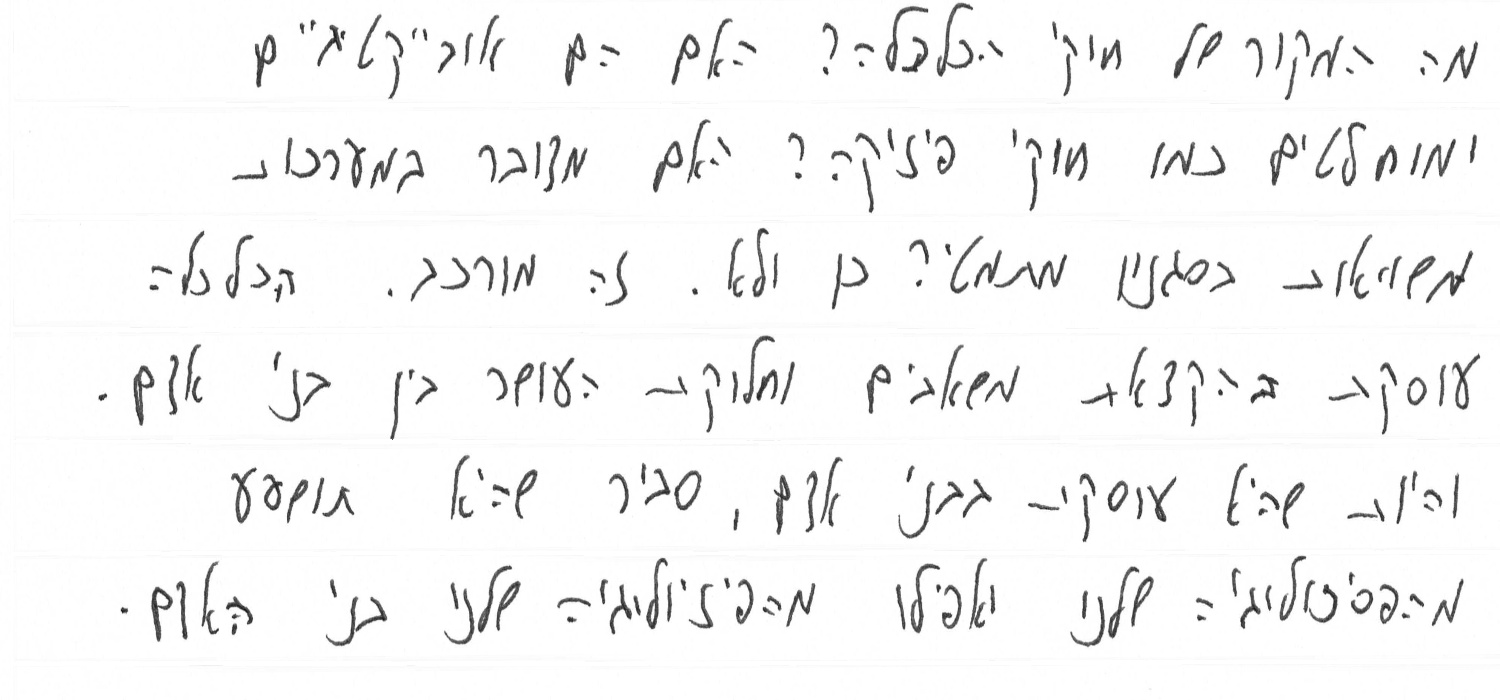 מה המקור של חוקי הכלכלה? האם הם אובייקטיביים
ומוחלטים כמו חוקי פיזיקה? האם מדובר במערכות
משוואות בסגנון מתמטי? כן ולא. זה מורכב. הכלכלה
עוסקת בהקצאת משאבים וחלוקת העושר בין בני אדם.
והיות שהיא עוסקת בבני אדם, סביר שהיא תושפע
מהפסיכולוגיה שלנו ואפילו מהפיזיולוגיה שלנו בני האדם.